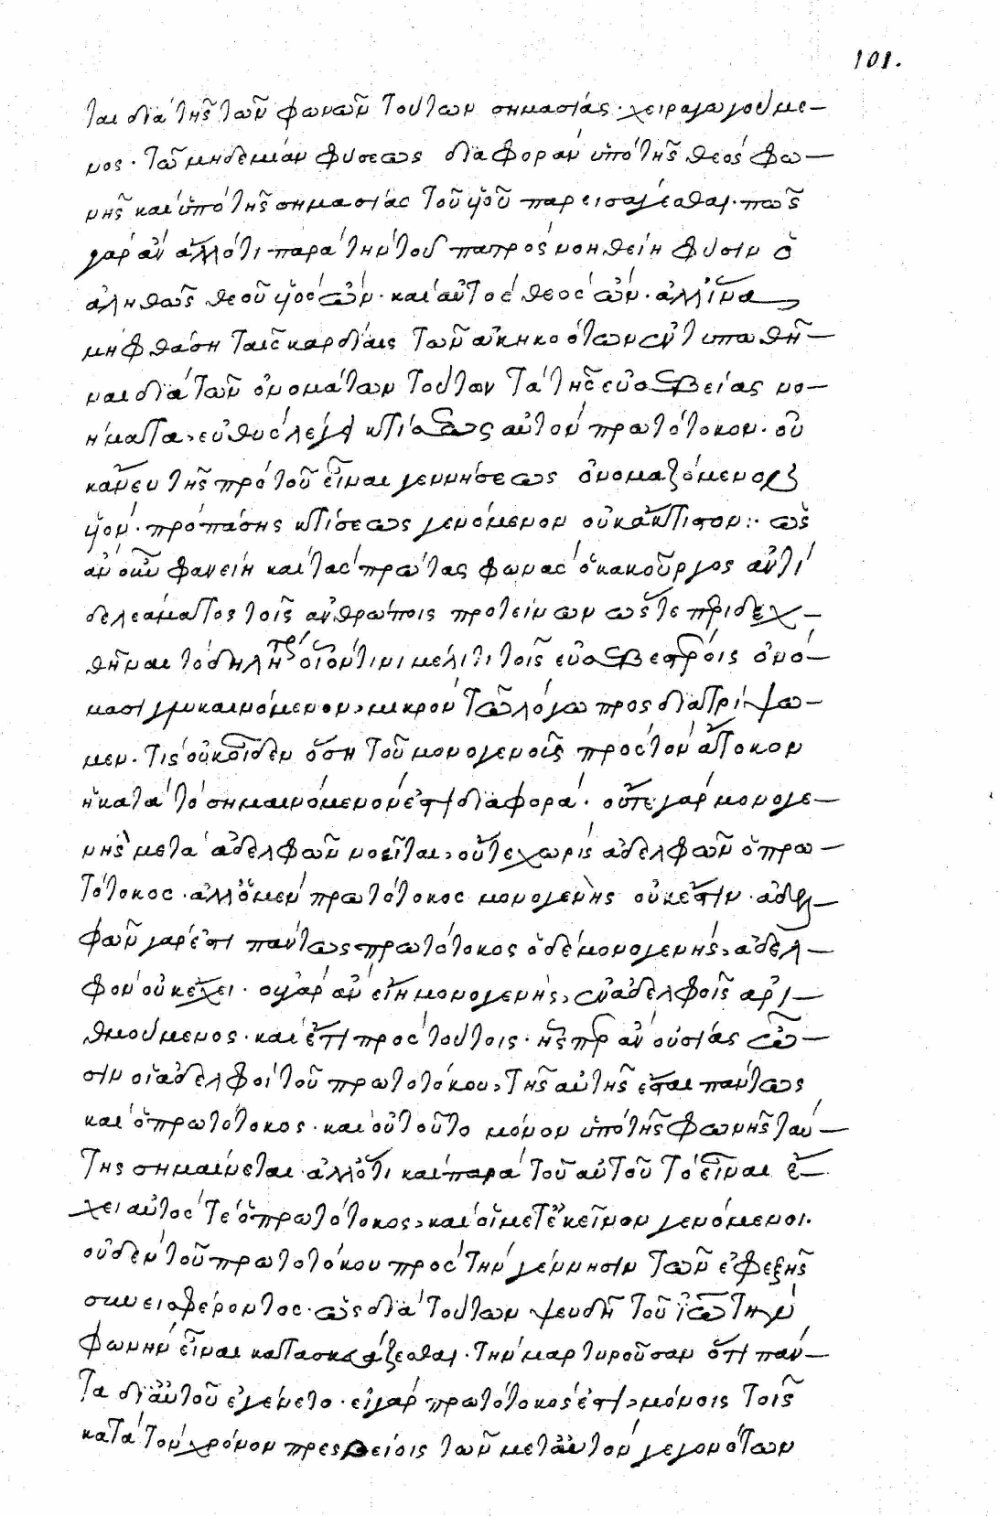 101.
ται διὰ τῆς τῶν φωνῶν τούτων σημασίας· χειραγωγούμε-
νος· τῶ μηδεμίαν φύσεως διαφορὰν ὑπὸ τῆς θεὸς φω-
νῆς καὶ ὑπὸ τῆς σημασίας τοῦ υἱοῦ παρεισάγεσθαι· πῶς
γὰρ ἂν ἄλλό τι παρὰ τὴν τοῦ πατρὸς νοηθείη φύσιν ὁ
ἀληθῶς θεοῦ υἱὸς ὢν· καὶ αὐτὸς θεὸς ὤν· ἀλλ' ἵνα
μὴ φθάση ταῖς καρδίαις τῶν ἀκηκοότων ἐντυπωθῆ-
ναι διὰ τῶν ὀνομάτων τούτων τὰ τῆς εὐσεβείας νο-
ήματα, εὐθὺς λέγει κτίσεως αὐτὸν πρωτότοκον· οὐ
κἄνευ τῆς πρὸ τοῦ εἶναι γεννήσεως ὀνομαζόμενον
υἱόν· πρὸ πάσης κτίσεως γενόμενον οὐκ ἄκτιστον: ὡς
ἂν οὖν φανείη καὶ τὰς πρώτας φωνὰς ὁ κακοῦργος ἀντὶ
δελεάματος τοῖς ἀνθρώποις προτείνων ὥστε παραδεχ-
θῆναι τὸ δηλητήριον οἷόν τινι μέλιτι τοῖς εὐσεβεστέροις ὀνό-
μασι γλυκαινόμενον, μικρὸν τῶ λόγω προσδιατρίψω-
μεν· τίς οὐκ οἶδεν ὅση τοῦ μονογενοῦς πρὸς τὸν πρωτότοκον
ἡ κατὰ τὸ σημαινόμενόν ἐστι διαφορά· οὔτε γὰρ μονογε-
νὴς μετὰ ἀδελφῶν νοεῖται, οὔτε χωρὶς ἀδελφῶν ὁ πρω-
τότοκος· ἀλλ' ὁ μὲν πρωτότοκος μονογενὴς οὐκ ἔστιν· ἀδελ-
φῶν γάρ ἐστι πάντως πρωτότοκος ὁ δὲ μονογενής, ἀδελ-
φὸν οὐκ ἔχει· οὐ γὰρ ἂν εἴη μονογενής, ἐν ἀδελφοῖς ἀρι-
θμούμενος· καὶ ἔτι πρὸς τούτοις· ἧς περ ἂν οὐσίας ὦ-
σιν οἱ ἀδελφοὶ τοῦ πρωτοτόκου, τῆς αὐτῆς ἔσται πάντως
καὶ ὁ πρωτότοκος· καὶ οὐ τοῦτο μόνον ὑπὸ τῆς φωνῆς ταύ-
της σημαίνεται· ἀλλ' ὅτι καὶ παρὰ τοῦ αὐτοῦ τὸ εἶναι ἔ-
χει αὐτός τε ὁ πρωτότοκος, καὶ οἱ μετ' ἐκεῖνον γενόμενοι·
οὐδὲν τοῦ πρωτοτόκου πρὸς τὴν γέννησιν τῶν ἐφεξῆς
συνεισφέροντος· ὡς διὰ τούτων ψευδῆ τοῦ ἰωάννου τὴν
φωνὴν εἶναι κατασκευάζεσθαι· τὴν μαρτυροῦσαν ὅτι πάν-
τα δι' αὐτοῦ ἐγένετο· εἰ γὰρ πρωτότοκός ἐστι, μόνοις τοῖς
κατὰ τὸν χρόνον πρεσβείοις τῶν μετ' αὐτὸν γεγονότων